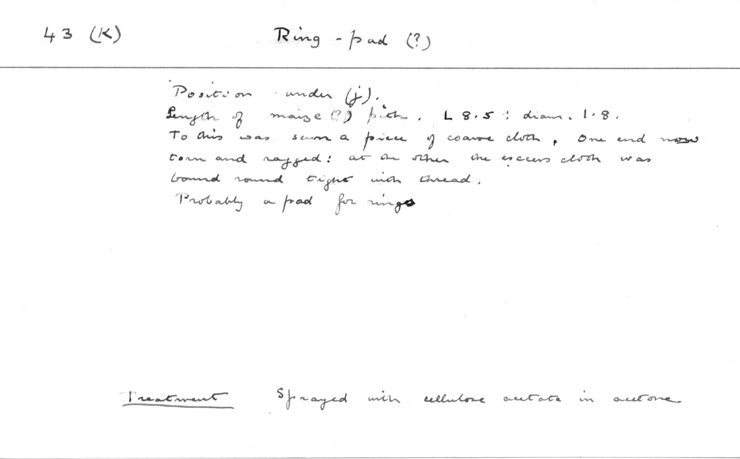 43 (K) Ring-pad (?)
Position under (j).
Length of maize (?) pith. L 8.5 ; diam. 1.8.
To this was sewn a piece of coarse cloth, one end now
torn and ragged: at the other the excess cloth was
bound round tight with thread.
Probably a pad for rings
Treatment Sprayed with cellulose acetate in acetone